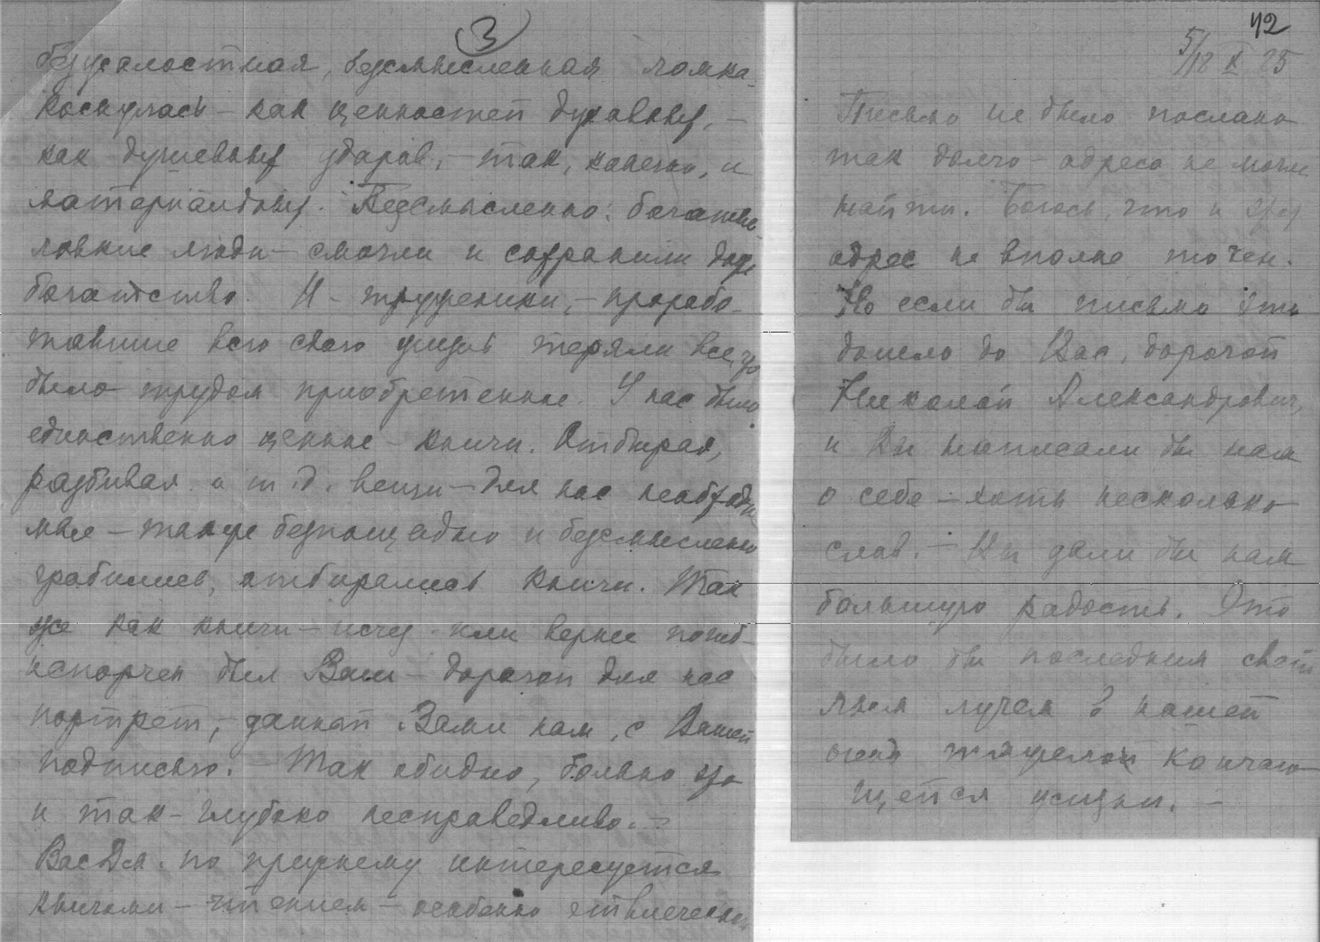 3
безжалостная, бессмысленная ломка
коснулась – как ценностей духовных, –
как душевных ударов, – так, конечно, и
материальных. Бессмысленно: богатые
ловкие люди – смогли и сохранили даже
богатство. И – труженики, – прорабо-
тавшие всю свою жизнь теряли все, что
было трудом приобретенное. У нас было
единственно ценное – книги. Отбирая,
разбивая и т.д. вещи – для нас необходи
мые – также безпощадно и бессмысленно
грабились, отбирались книги. Так
же как книги – исчез или вернее
испорчен был Ваш – дорогой для нас
портрет, – данный Вами нам, с Вашей
подписью. Так обидно, больно это
и так – глубоко несправедливо. –
Вас. Дм. по прежнему интересуется
книгами – чтением – особенно отвлеченным
42
5/18 X 25
Письмо не было послано
так долго – адреса не могли
найти. Боюсь, что и этот
адрес не вполне точен.
Но если бы письмо это
дошло до Вас, дорогой
Николай Александрович,
и Вы написали бы нам
о себе – хоть несколько
слов. – Вы дали бы нам
большую радость. Это
было бы последним свет
лым лучем в нашей
очень тяжелой кончаю
щейся жизни. –